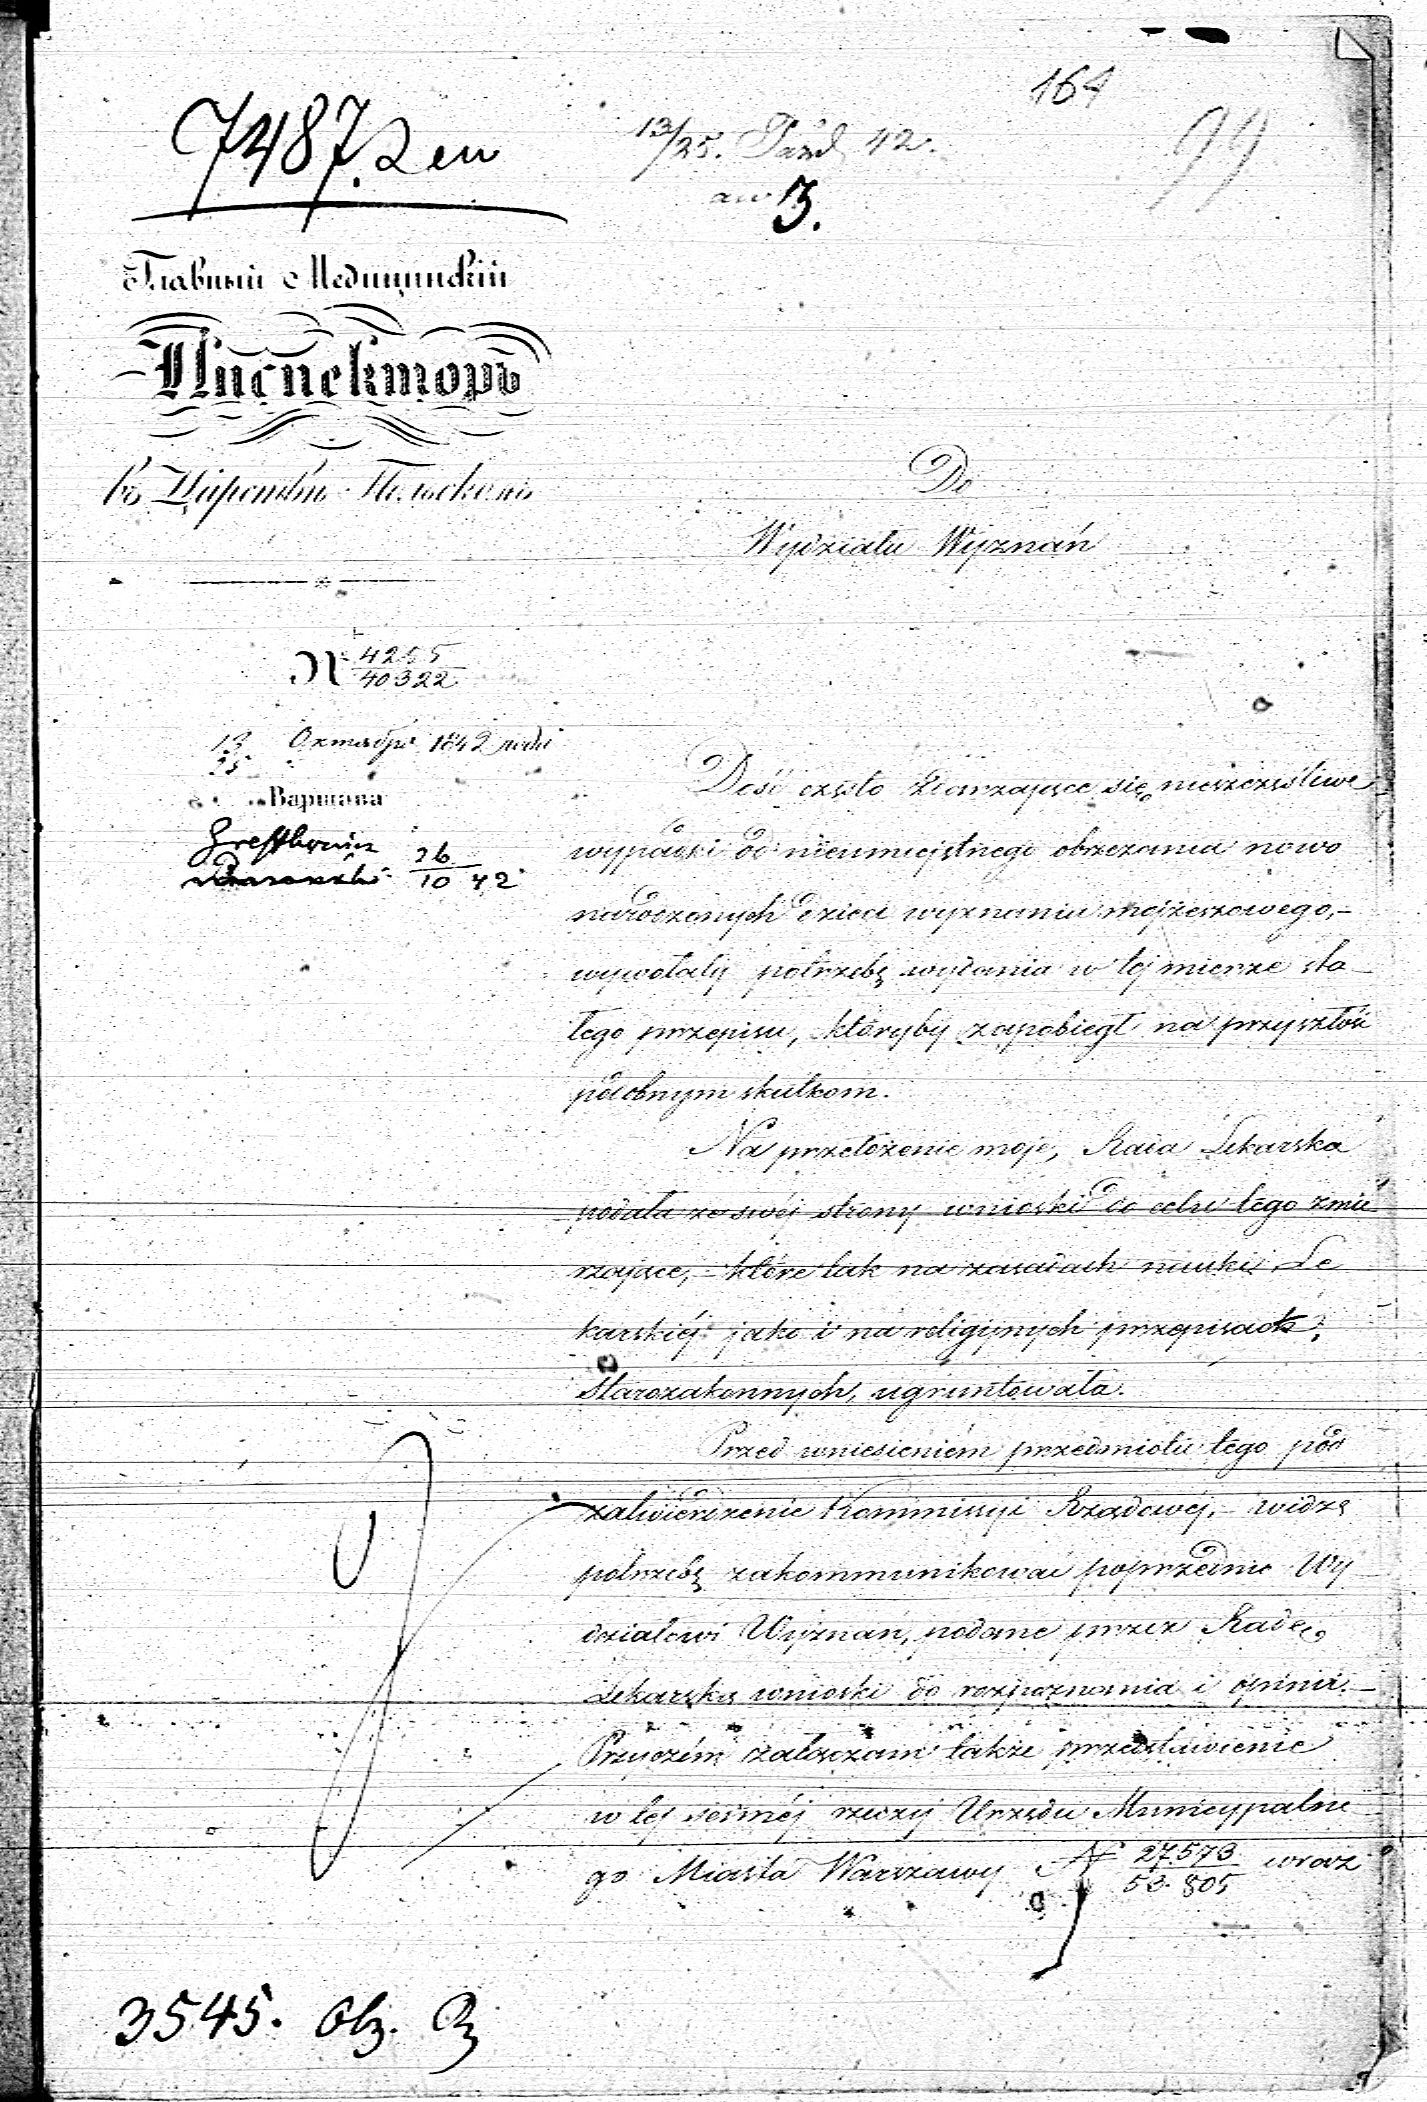 164
7487.
13/25. Paźd 42.
99
3.
Главный Медицинскій
Инспекторъ
въ Царствѣ Польскомъ
Do
Wydziału Wyznań
№ 4255/40322
13/25 Октября 1842 года
Варшава
26/10 42
Dość często zdarzające się nieszczęśliwe
wypadki od nieumiejętnego obrzezania nowo
narodzonych dzieci wyznania mojżeszowego,–
wywołały potrzebę wydania w tej mierze sta-
łego przepisu, któryby zapobiegł na przyszłość
podobnym skutkom.
Na przełożenie moje, Rada Lekarska
podała ze swéj strony wnioski do celu tego zmie-
rzające,– które tak na zasadach nauki Le
karskiéj jako i na religijnych przepisach,
Starozakonnych, ugruntowała.
Przed wniesieniem przedmiotu tego pod
zatwierdzenie Kommissyi Rządowéj,– widzę
potrzebę zakommunikować poprzednio Wy
działowi Wyznań, podane przez Radę
Lekarską wnioski do rozpoznania i opinii.–
Przyczém załączam także przedstawienie
w téj saméj rzeczy Urzędu Municypalne
go Miasta Warszawy № 27.573/53.805 wraz
3545.